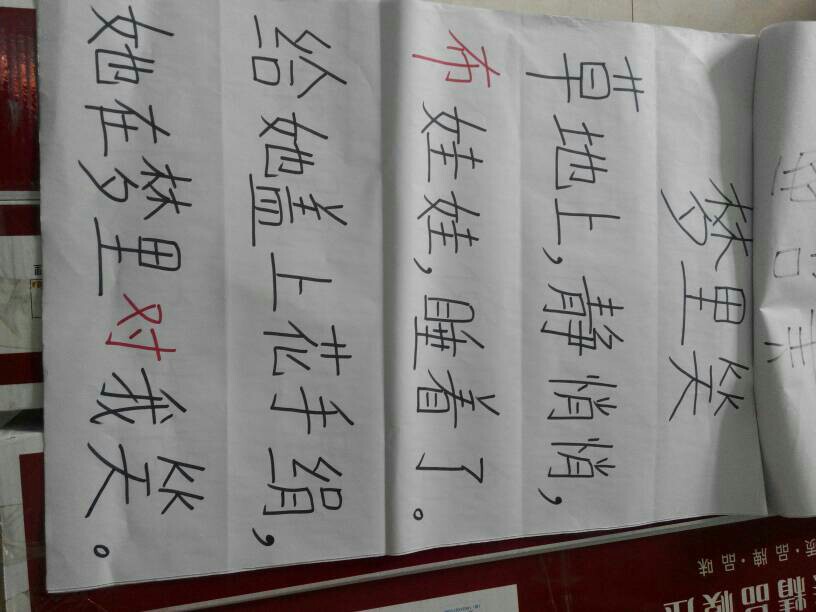 梦里笑
草地上,静悄悄,
布娃娃,睡着了。
给她盖上花手绢,
她在梦里对我笑。
质·品·牌·品·味